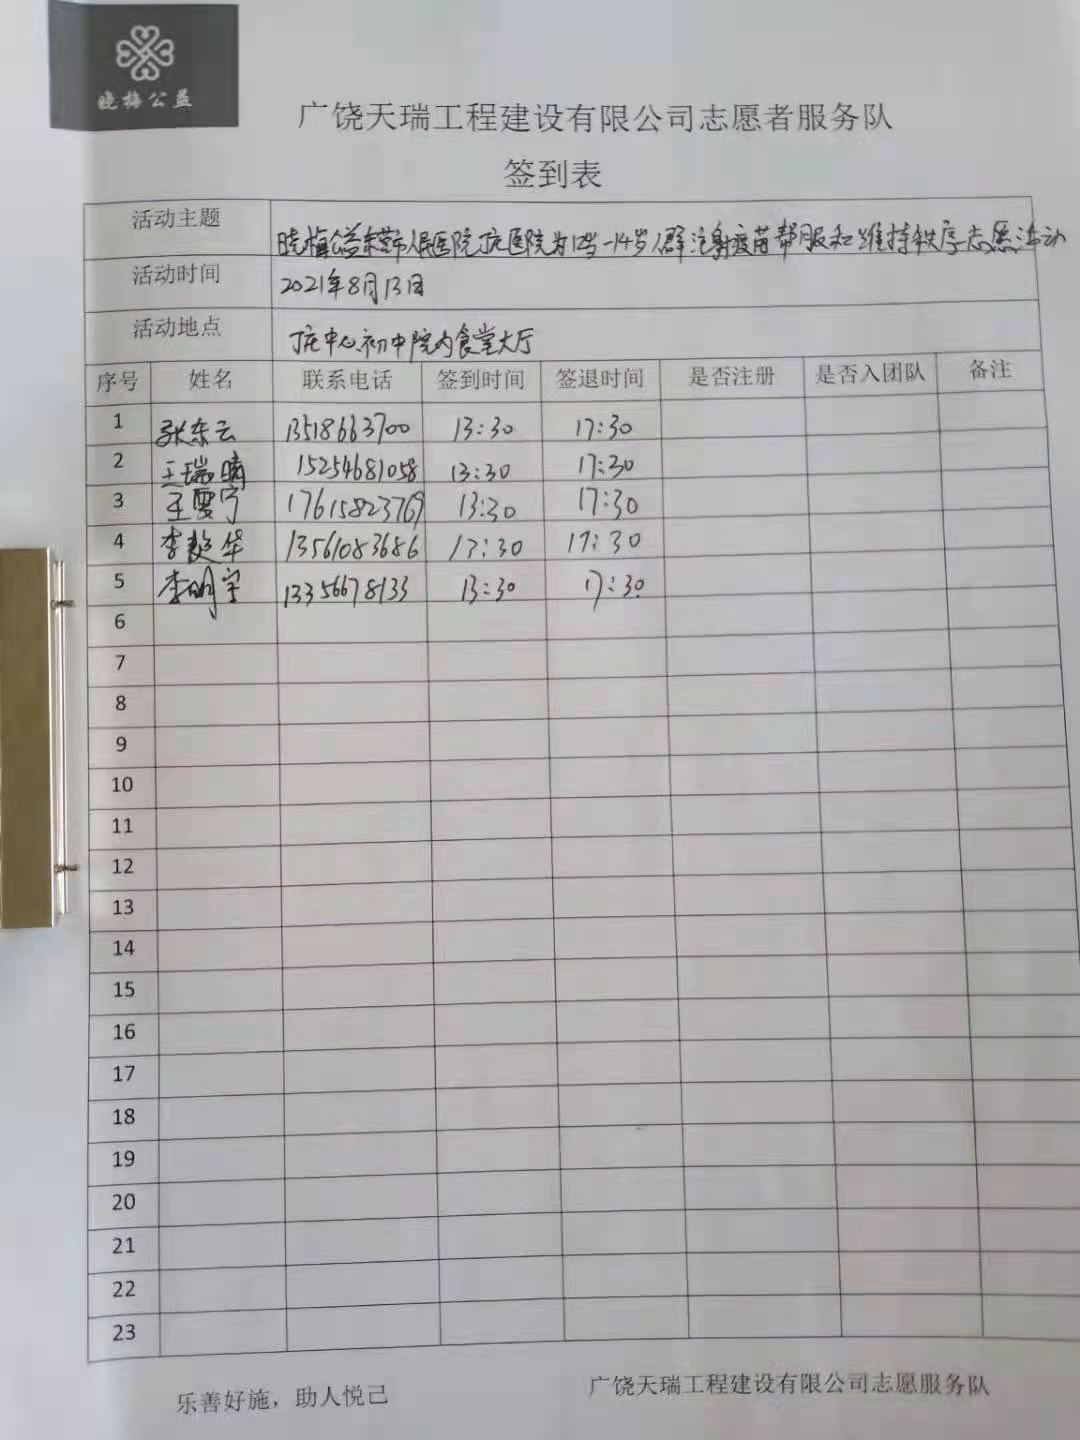 晓梅公益
广饶天瑞工程建设有限公司志愿者服务队
签到表
活动主题 晓梅公益东营市人民医院丁庄医院为12岁-14岁人群注射疫苗帮服和维持秩序志愿活动
活动时间 2021年8月13日
活动地点 丁庄中心初中院内食堂大厅
序号 姓名 联系电话 签到时间 签退时间 是否注册 是否入团队 备注
1 张东云 13518663700 13:30 17:30
2 王瑞晴 15254681058 13:30 17:30
3 王雯宁 17615823769 13:30 17:30
4 李 华 13561083686 13:30 17:30
5 李明宇 13356678133 13:30 17:30
6
7
8
9
10
11
12
13
14
15
16
17
18
19
20
21
22
23
乐善好施，助人悦己 广饶天瑞工程建设有限公司志愿服务队